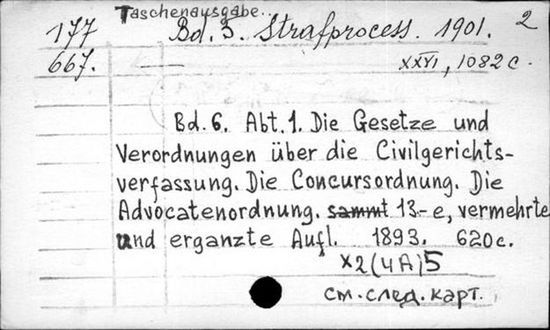 Taschenausgabe... 2
177 Bd. 3. Strafprocess. 1901.
667. XXVI, 1082 с.
Bd. 6. Abt. 1. Die Gesetze und
Verordnungen über die Civilgerichts-
verfassung. Die Concursordnung. Die
Advocatenordnung. sammt 13-e, vermehrte
und erganzte Aufl. 1893. 620 с.
x2(4А)5
см. след. карт.